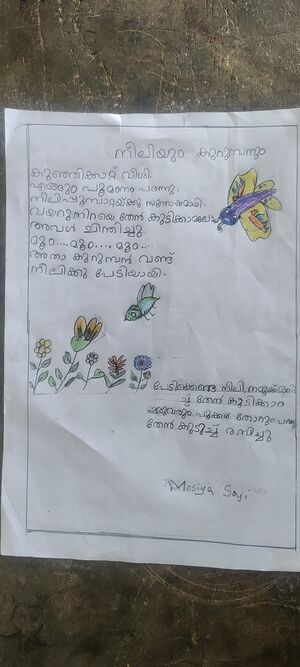 നീലിയും കുറുമ്പനും
കുഞ്ഞിക്കാറ്റ് വീശി.
എങ്ങും പൂമണം പരന്നു.
നീലിപൂമ്പാറ്റയ്ക്കു സന്തോഷമായി.
വയറുനിറയെ തേൻ കുടിക്കാമല്ലോ
അവൾ ചിന്തിച്ചു.
മൂം....മൂം.... മൂം....
അതാ കുറുമ്പൻ വണ്ട്
നീലിക്കു പേടിയായി.
പേടിക്കണ്ട നീലി, നമുക്കൊന്നി
ച്ച് തേൻ കുടിക്കാം
ഇരുവരും പൂക്കൾ തോറും പറന്നു
തേൻ കുടിച്ച് രസിച്ചു
Mesiya Saji